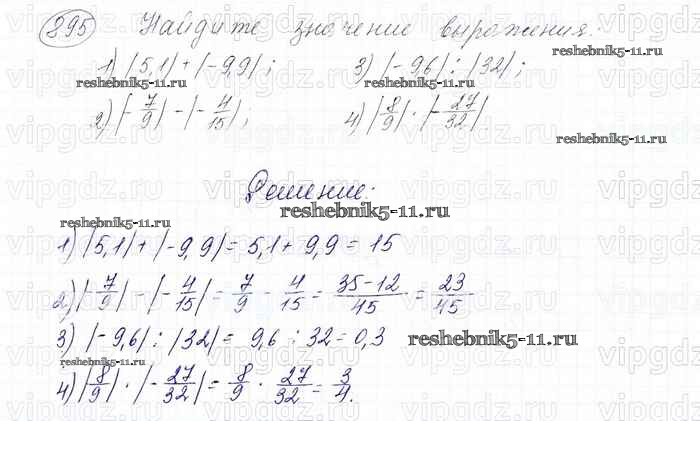 295 Найдите значение выражения:
1) |5,1| + |-9,9|; 3) |-9,6| : |32|;
2) |-7/9| - |-4/15|; 4) |8/9| · |-27/32|
Решение:
1) |5,1| + |-9,9| = 5,1 + 9,9 = 15
2) |-7/9| - |-4/15| = 7/9 - 4/15 = 35-12/45 = 23/45
3) |-9,6| : |32| = 9,6 : 32 = 0,3
4) |8/9| · |-27/32| = 8/9 · 27/32 = 3/4.
reshebnik5-11.ru
reshebnik5-11.ru
reshebnik5-11.ru
reshebnik5-11.ru
reshebnik5-11.ru
reshebnik5-11.ru
reshebnik5-11.ru
vipgdz.ru